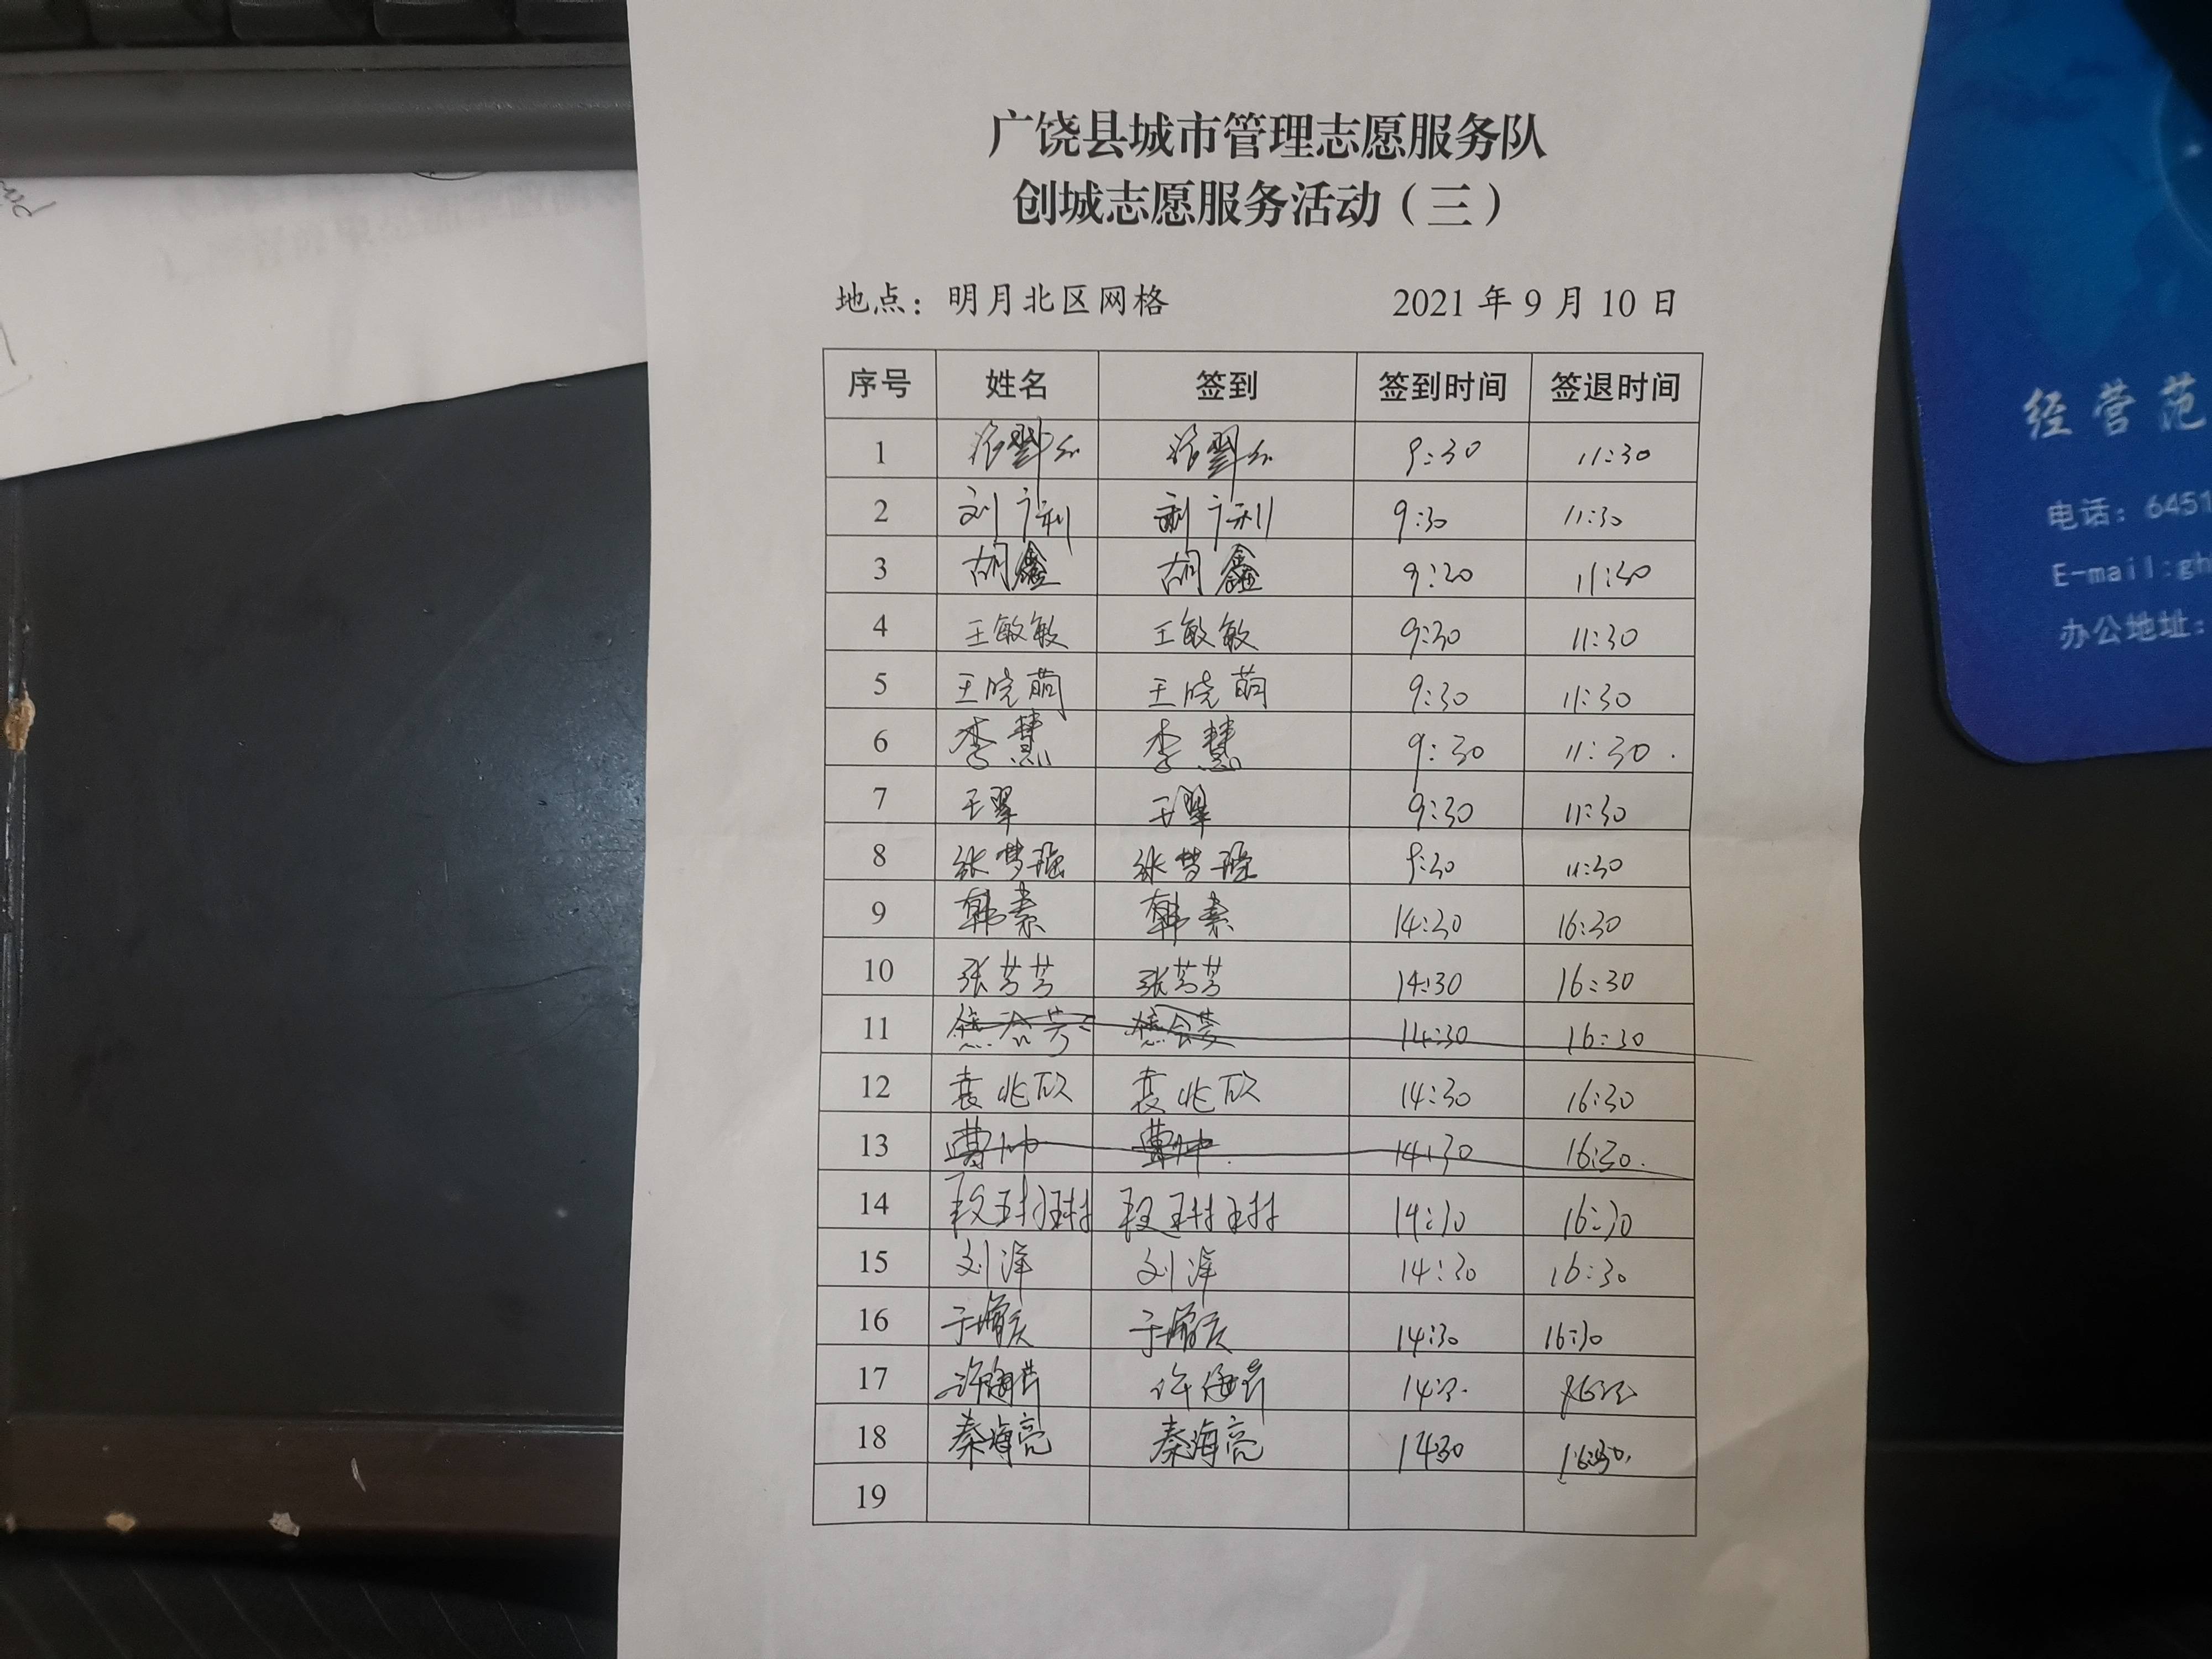 广饶县城市管理志愿服务队
创城志愿服务活动（三）
地点：明月北区网格 2021 年 9 月 10 日
序号 姓名 签到 签到时间 签退时间
1 9:30 11:30
2 刘 刘 9:30 11:30
3 胡鑫 胡鑫 9:30 11:30
4 王敏敏 王敏敏 9:30 11:30
5 王晓萌 王晓萌 9:30 11:30
6 李慧 李慧 9:30 11:30.
7 王翠 王翠 9:30 11:30
8 张梦瑶 张梦瑶 9:30 11:30
9 韩素 韩素 14:30 16:30
10 张芳芳 张芳芳 14:30 16:30
11 14:30 16:30
12 袁兆欣 袁兆欣 14:30 16:30
13 曹帅 曹帅. 14:30 16:30.
14 段琳琳 段琳琳 14:30 16:30
15 刘泽 刘泽 14:30 16:30
16 于 于 14:30 16:30
17 许海 许海
18 秦海亮 秦海亮 14:30 16:30.
19
经营范
电话：6451
E-mail:gh
办公地址：